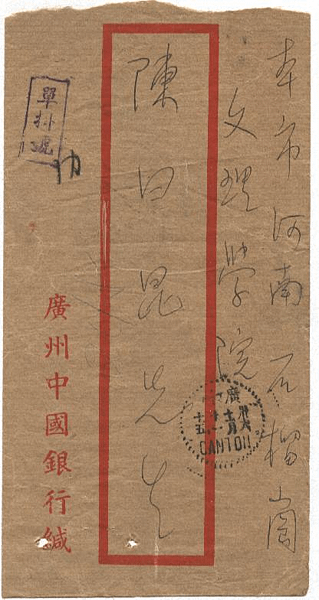 本市河南石榴崗
文理學院
陳日昆先生
廣州中國銀行緘
單掛號
廣
CANTON